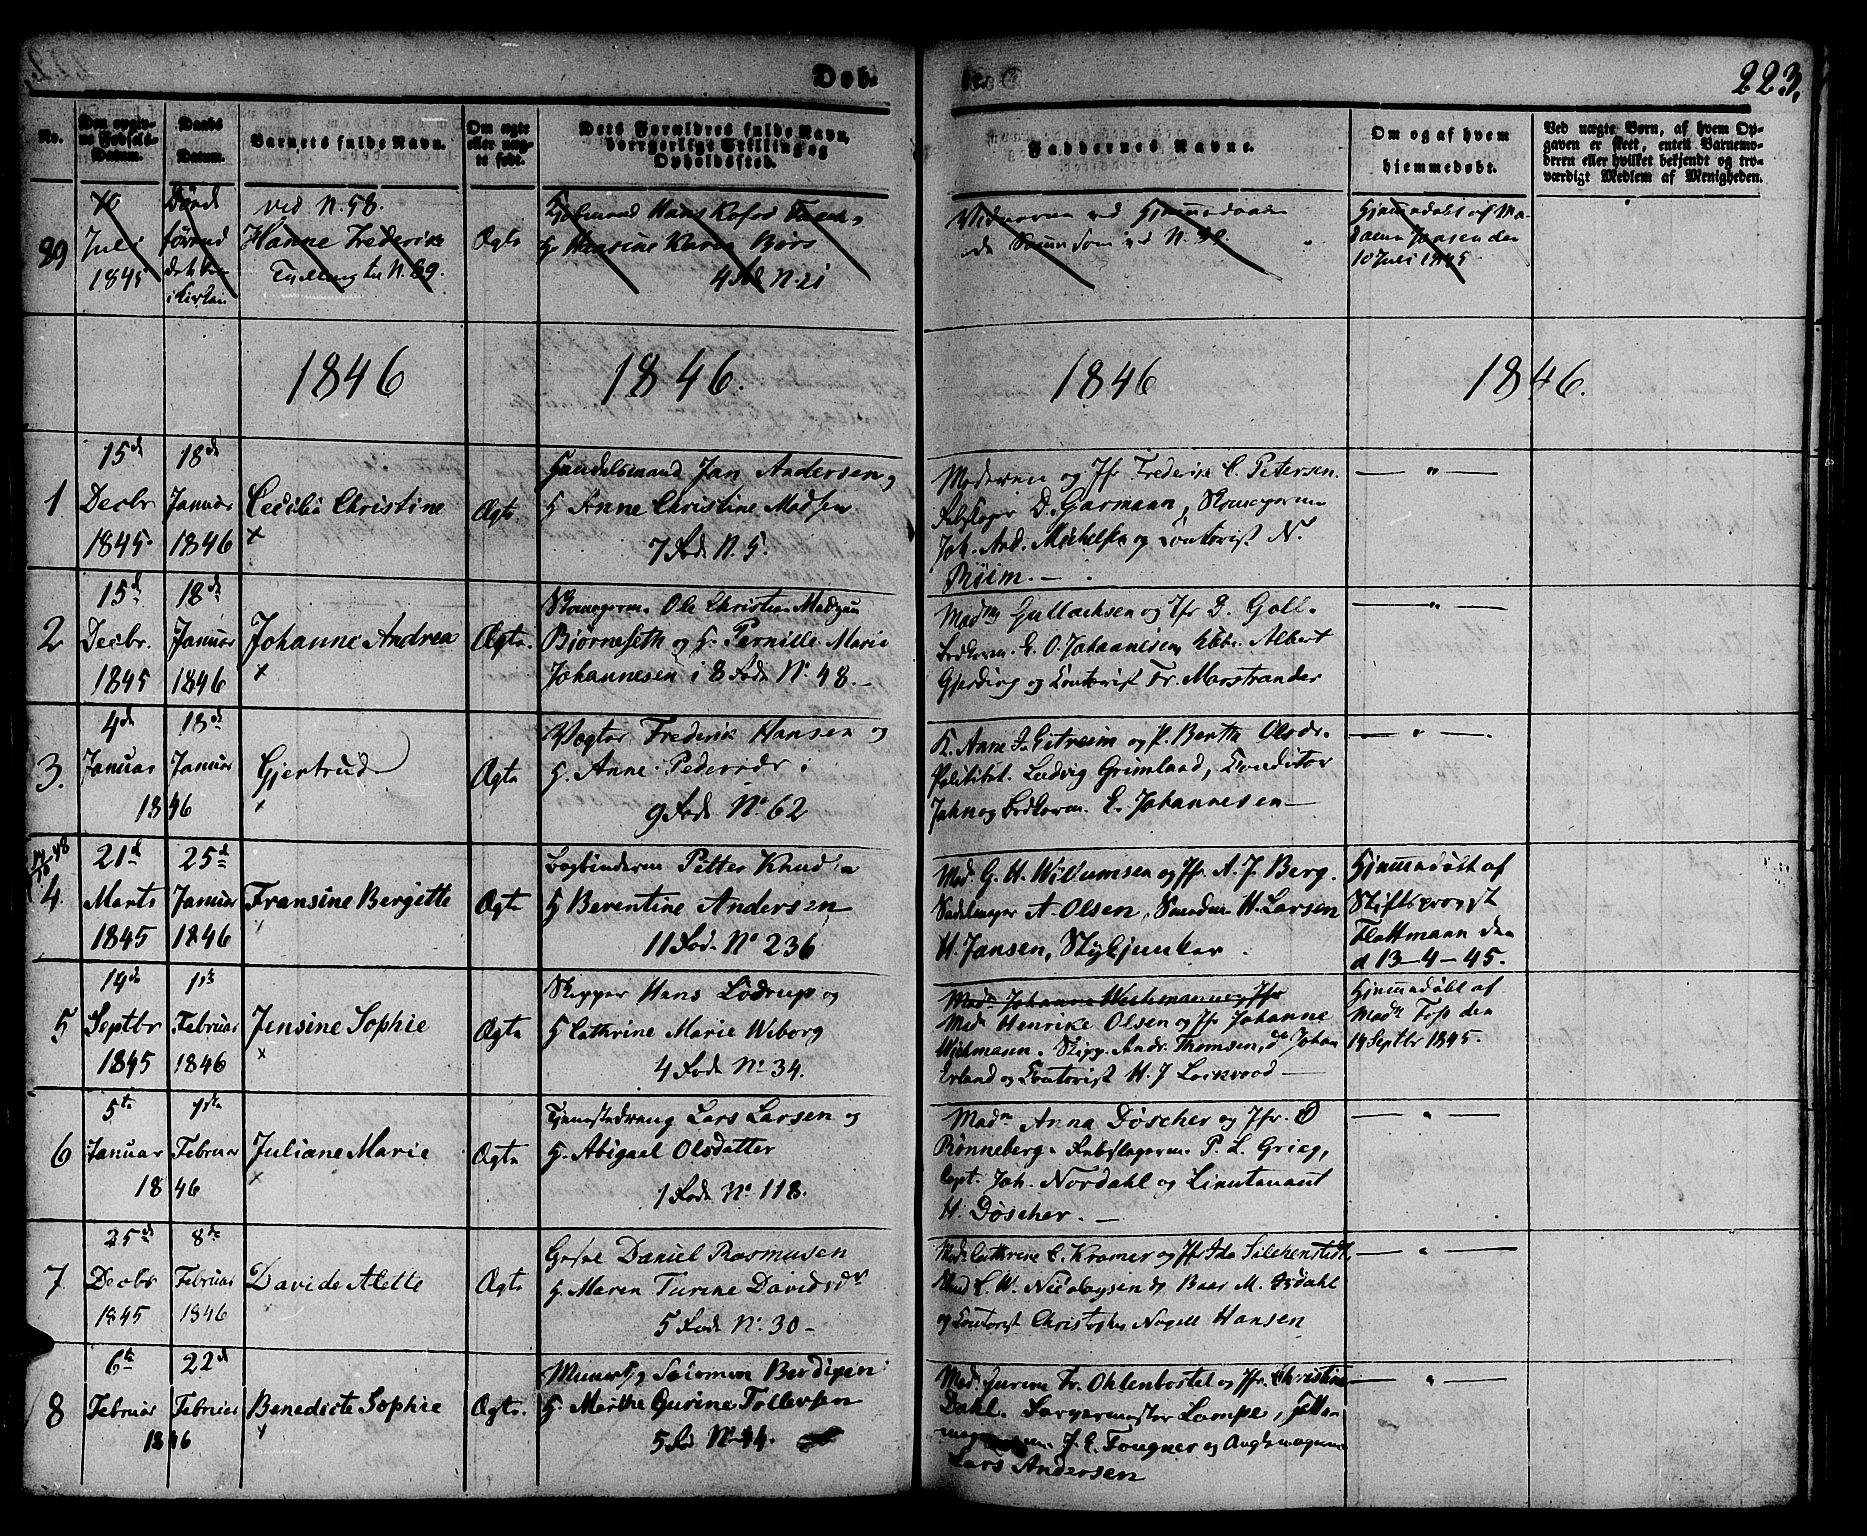 Døb-
te.
223.
No.
Den opgiv-
ne Fødsels-
Datum.
Daabs
Datum.
Barnets fulde Navn.
Om ægte
eller uæg-
te født.
Dets Forældres fulde Navn,
borgerlige Stilling og
Opholdssted.
Faddernes Navne.
Om og af hvem
hjemmedøbt.
Ved uægte Børn, af hvem Op-
gaven er skeet, enten Barnemo-
deren eller hvilket bekjendt og tro-
værdigt Medlem af Menigheden.
89
10
Juli
1845
i Kirken
ved N. 58.
Hanne Frederike
Tvilling til N. 89.
Ægte
Hans Kofod
H. Hansine Karen Børs
4 Rode N. 21
de samme som ved N.
Hjemmedøbt af Ma-
dame Jansen den
10 Juli 1845
1846
1846.
1846
1846.
1
15de
Decbr
1845.
18de
Januar
1846
Cecilia Christine
×
Ægte
Handelsmand Jan Andersen og
H Anne Christine Madsen
7 Rode N. 5.
Moderen og Jfr Frederike C. Petersen.
Rebslager D. Garmann, Skomagerm
Joh. And. Michelsen og Contorist N.
Riim. —
— " —
2
15de
Decbr.
1845
18de
Januar
1846
Johanne Andrea
×
Ægte.
Skomagerm. Ole Christian Madsen
Bjørneseth og H. Pernille Marie
Johannesen i 8 Rode N. 48. —
Madm Gullachsen og Jfr D. Goll.
Bødkerm. E. O. Johannesen, Ebbe Albert
Gjerding og Contorist Fr. Marstrander
— " —
3.
4de
Januar
1846
18de
Januar
Gjertrud
×
Ægte
Vægter Frederik Hansen og
H. Anne Pedersdr i
9 Rode No. 62
K. Anne J. Gitreim og P. Berth Olsdr.
Politibt. Ludvig Grimland, Conditor
Jahn og Bødkerm. E. Johannesen —
— " —.
4.
21de
Marts
1845
25de
Januar
1846
Fransine Bergitte
Ægte
Bogbinderm Petter Knudsen
H Berentine Andersen
11 Rode No 236
Mad. G. H. Willumsen og Jfr. A. J. Berg.
Sadelmager A. Olsen, Smedm H. Larsen
H. Jansen, Stykjunker.
Hjemmedøbt af
Stiftsprovst
Flottmann den
d 13–4–45.
5
14de
Septbr
1845
1ste
Februar
1846
Jensine Sophie
×
Ægte
Skipper Hans Lødrup og
H Cathrine Marie Wiborg
4 Rode No. 34.
Madm Johanne Wichmann og Jfr
Madm Henrike Olsen og Jfr Johanne
Wichmann. Skipp. Andr. Thomsen, do Johan
Erland og Contorist H. J Lockwood —
Hjemmedøbt af
Madm Foss den
14 Septbr 1845.
6
5te
Januar
1846
1ste
Februar
Juliane Marie
×
Ægte
Tjenestedreng Lars Larsen og
H. Abigael Olsdatter
1 Rode No 118.
Madm Anna Døscher og Jfr. O
Rønneberg. Rebslagerm. P. L. Grieg,
Capt. Joh. Nordahl og Lieutenant
H. Døscher. —
— " —
7
25de
Decbr
1845
8de
Februar
1846
Davide Alette
Ægte
Gosse Daniel Rasmusen
H. Maren Turine Davidsdr
5 Rode No. 30 –
Mad. Cathrine C. Kramer og Jfr Ida Silchenstedt,
C. W. Nicolaysen og Baar M.
og Contorist Christopher Nagell Hansen
— " —
8
6te
Februar
1846
22de
Februar
Benedicte Sophie
Ægte.
Salomon Berdixen
H. Marthe Gurine Tollefsen
5 Rode No 44.
Madm Jurine Fr. Ohlenbostel og Jfr. Christine
Dahl. Farvermester Lampe,
J. E. Fougner og
Lars Andersen
— " —